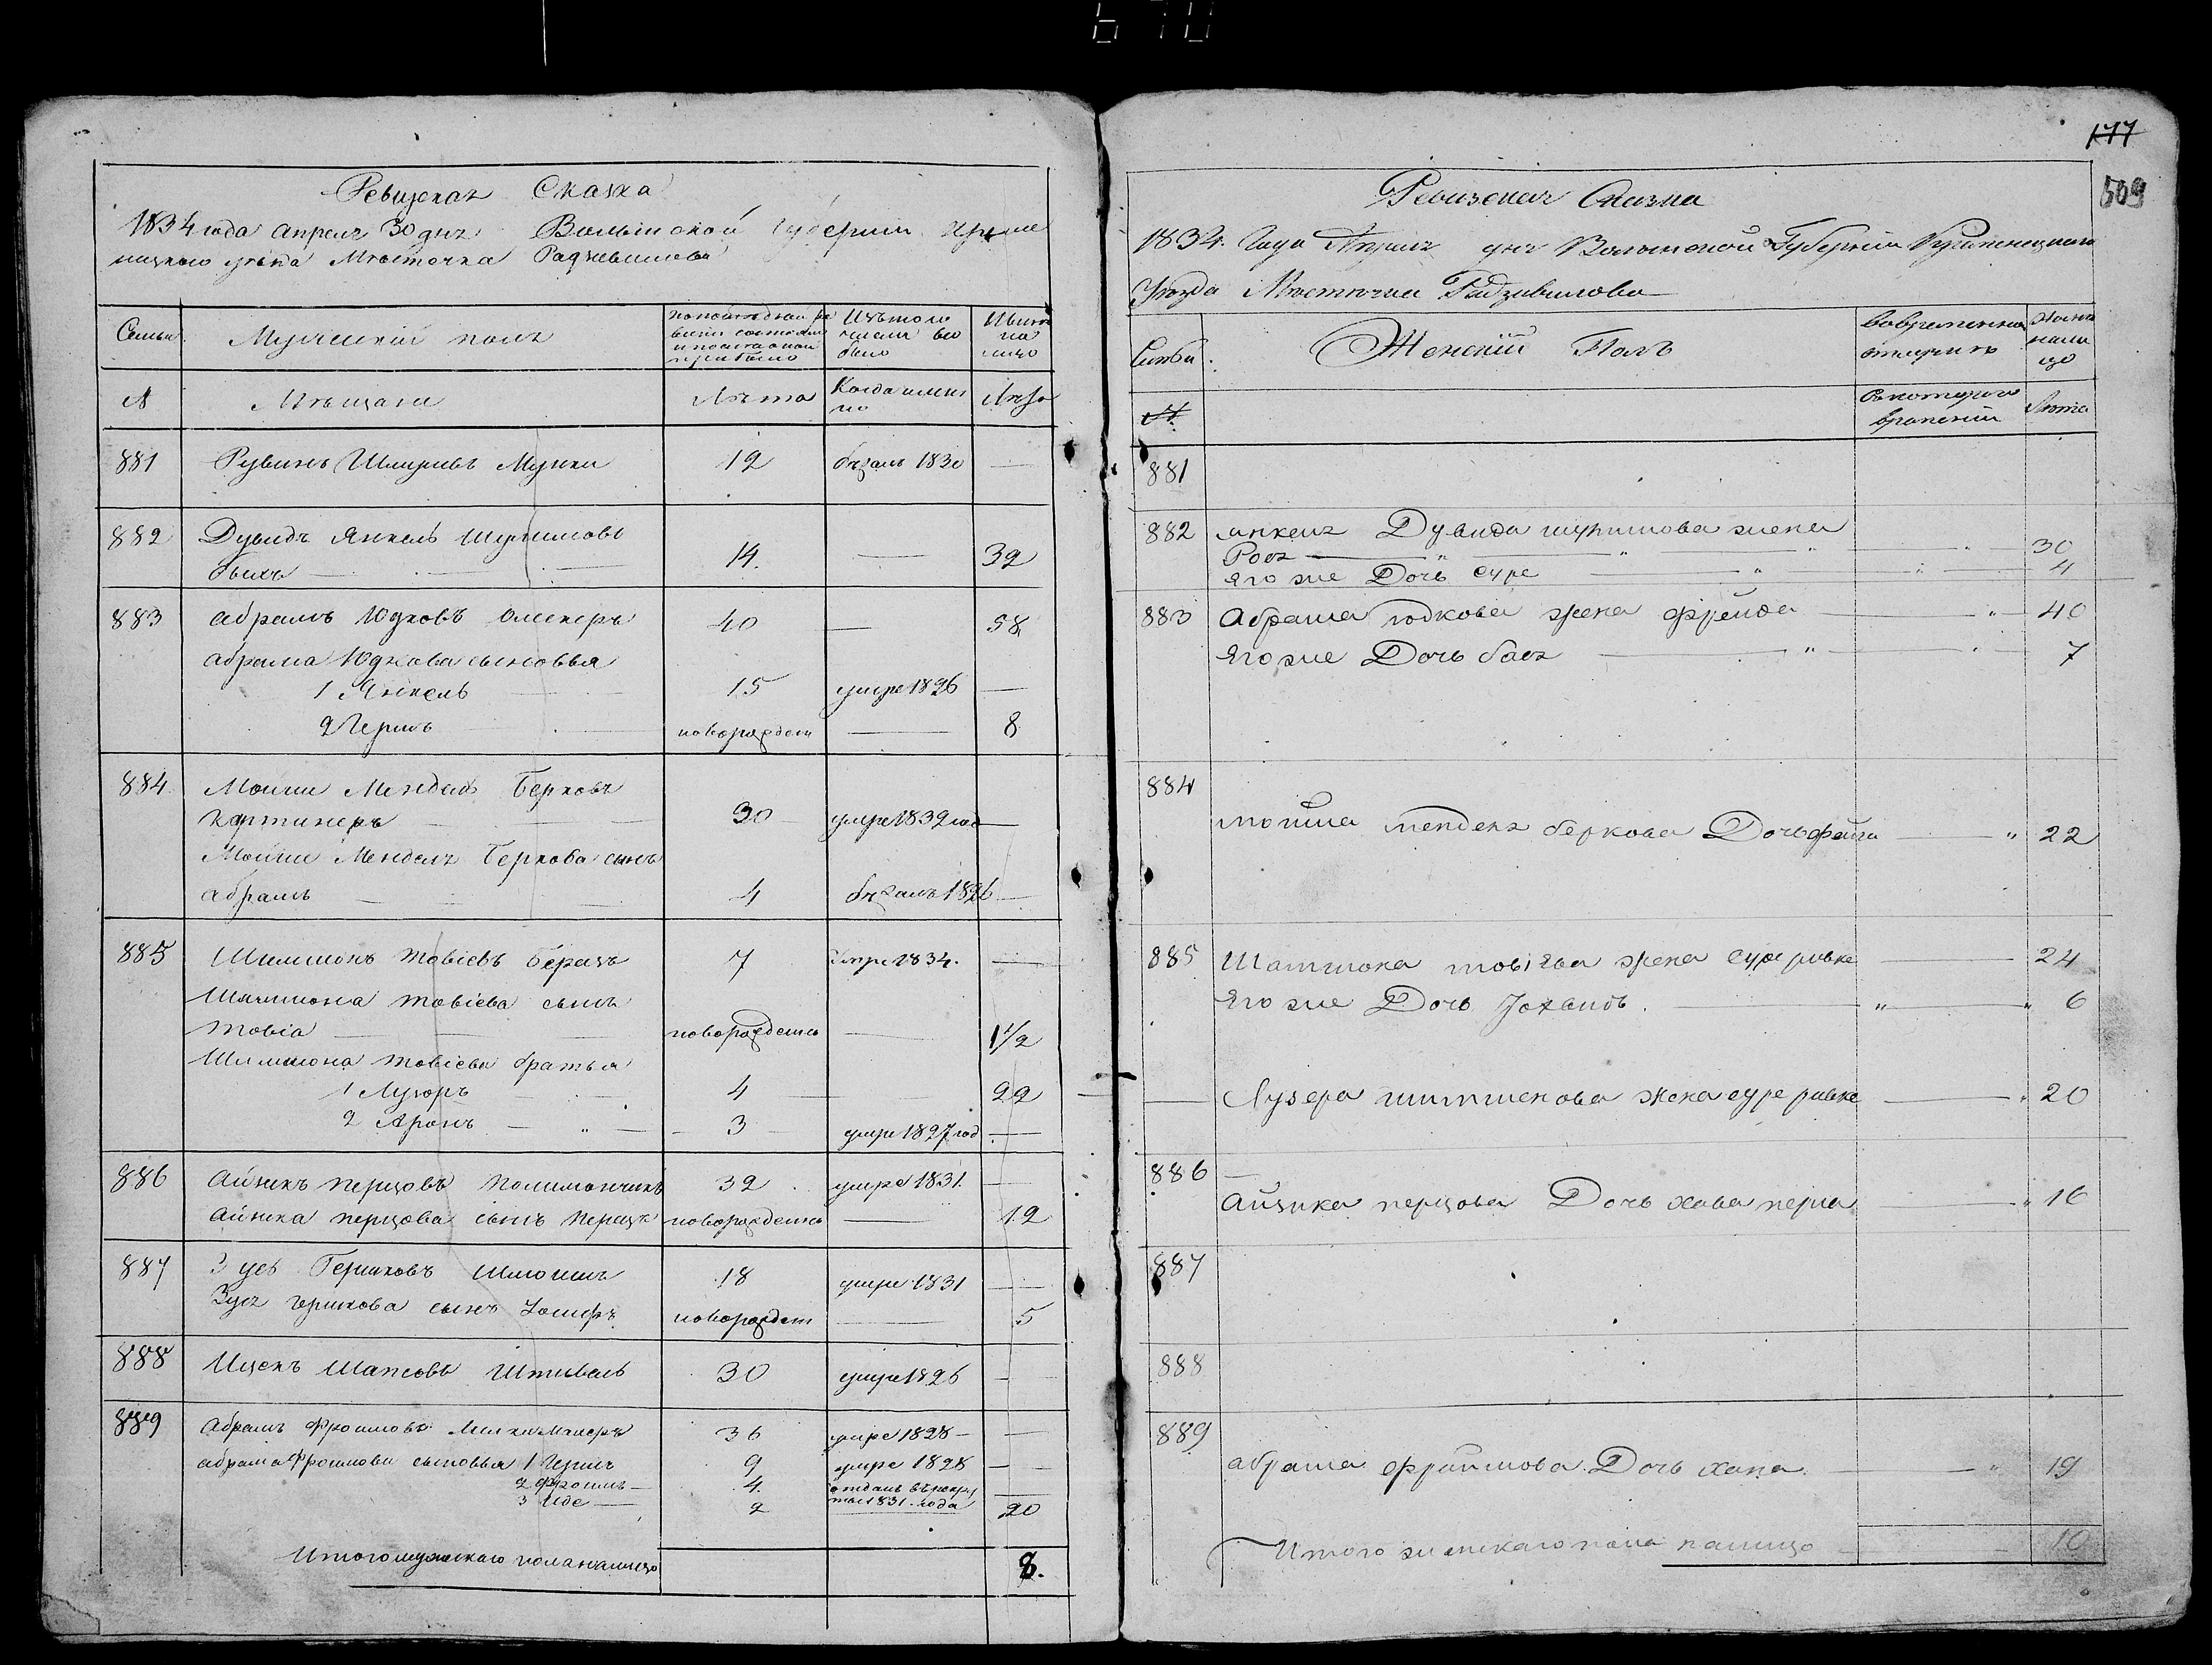 670
Ревизская Сказка
1834 года апреля 30 дня Волынской Губернии Креме
нецкого уезда Местечка Радзивилова
Семьи Мужеский полъ
По последней ре
визии состояло
и после оной
прибыло
Изъ того
числа вы
было
Ныне
на
лицо
№ Мещане Лета Когда имен
но Лета
881 Рувинъ Шмулевъ 12 бежалъ 1830 —
882 Дувидъ Янкель Шулимовъ
14. — 32
883 абрамъ Юдковъ 40 — 58
абрама Юдкова сыновья
1 Янкель 15 умре 1826 —
2 Гершъ новорожден — 8
884 Мошки Мендель Берковъ
30 умре 1832 год —
Мошки Мендель Беркова сынъ
абрамъ — 4 бежалъ 1826 —
885 Шимшонъ товіевъ 7 Умре 1834. —
Шимшона товіева сынъ
товіа — новорожденъ — 1 1/2
Шимшона товіева братья
1 Лузоръ 4 — 22
2 Аронъ — 3 умре 1827 год —
886 Айзикъ перцовъ 32 умре 1831. —
Айзика перцова сынъ перецъ новорожденъ — 12
887 Зусь Гершковъ 18 умре 1831 —
Зуся гершкова сынъ Іосифъ новорожден — 5
888 Ицекъ Шапсовъ 30 умре 1826 —
889 абрамъ Фроимовъ 36 умре 1828 —
абрама Фроимова сыновья 1 Гершъ 9 умре 1828 —
2 Фроимъ — 4. отданъ въ рекру —
3 Иде — 2 ты 1831. года 20
Итого мужескаго пола налицо 8.
177
509
Ревизская Сказка
1834. Года Апреля дня Волынской Губерніи Кременецкаго
Уезда Местечка Радзивилова
Семьи Женскій Полъ
Вовременной
отлучке
Ныне
нали
цо
№ Скотораго
времени Лета
881
882 янкеля Дувида шулимова жена
Рося — " — " — " — 30
яго же Дочь суре — " — 4
883 Абрама юдкова жена фрейда — " — 40
яго же Дочь бася — " — 7
884
мошка менделя беркова Дочь фейга — " 22
885 Шамшона товіява жена суре ривке — 24
яго же Дочь — " — " 6
— Лузера шимшонова жена суре ривке — " 20
886 —
айзика перцова Дочь хава перла — " 16
887
888
889
абрама фроимова Дочь хана — " 19
Итого женскаго пола налицо — 10